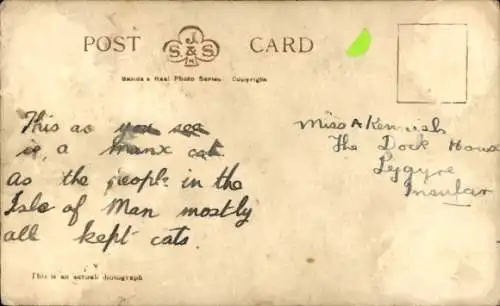 POST CARD
J
S & S
Sands's Real Photo Series Copyright
This as you see
is, a manx cat
as the people in the
Isle of Man mostly
all kept cats.
Miss A Kennish
The Dock House
This is an actual photograph